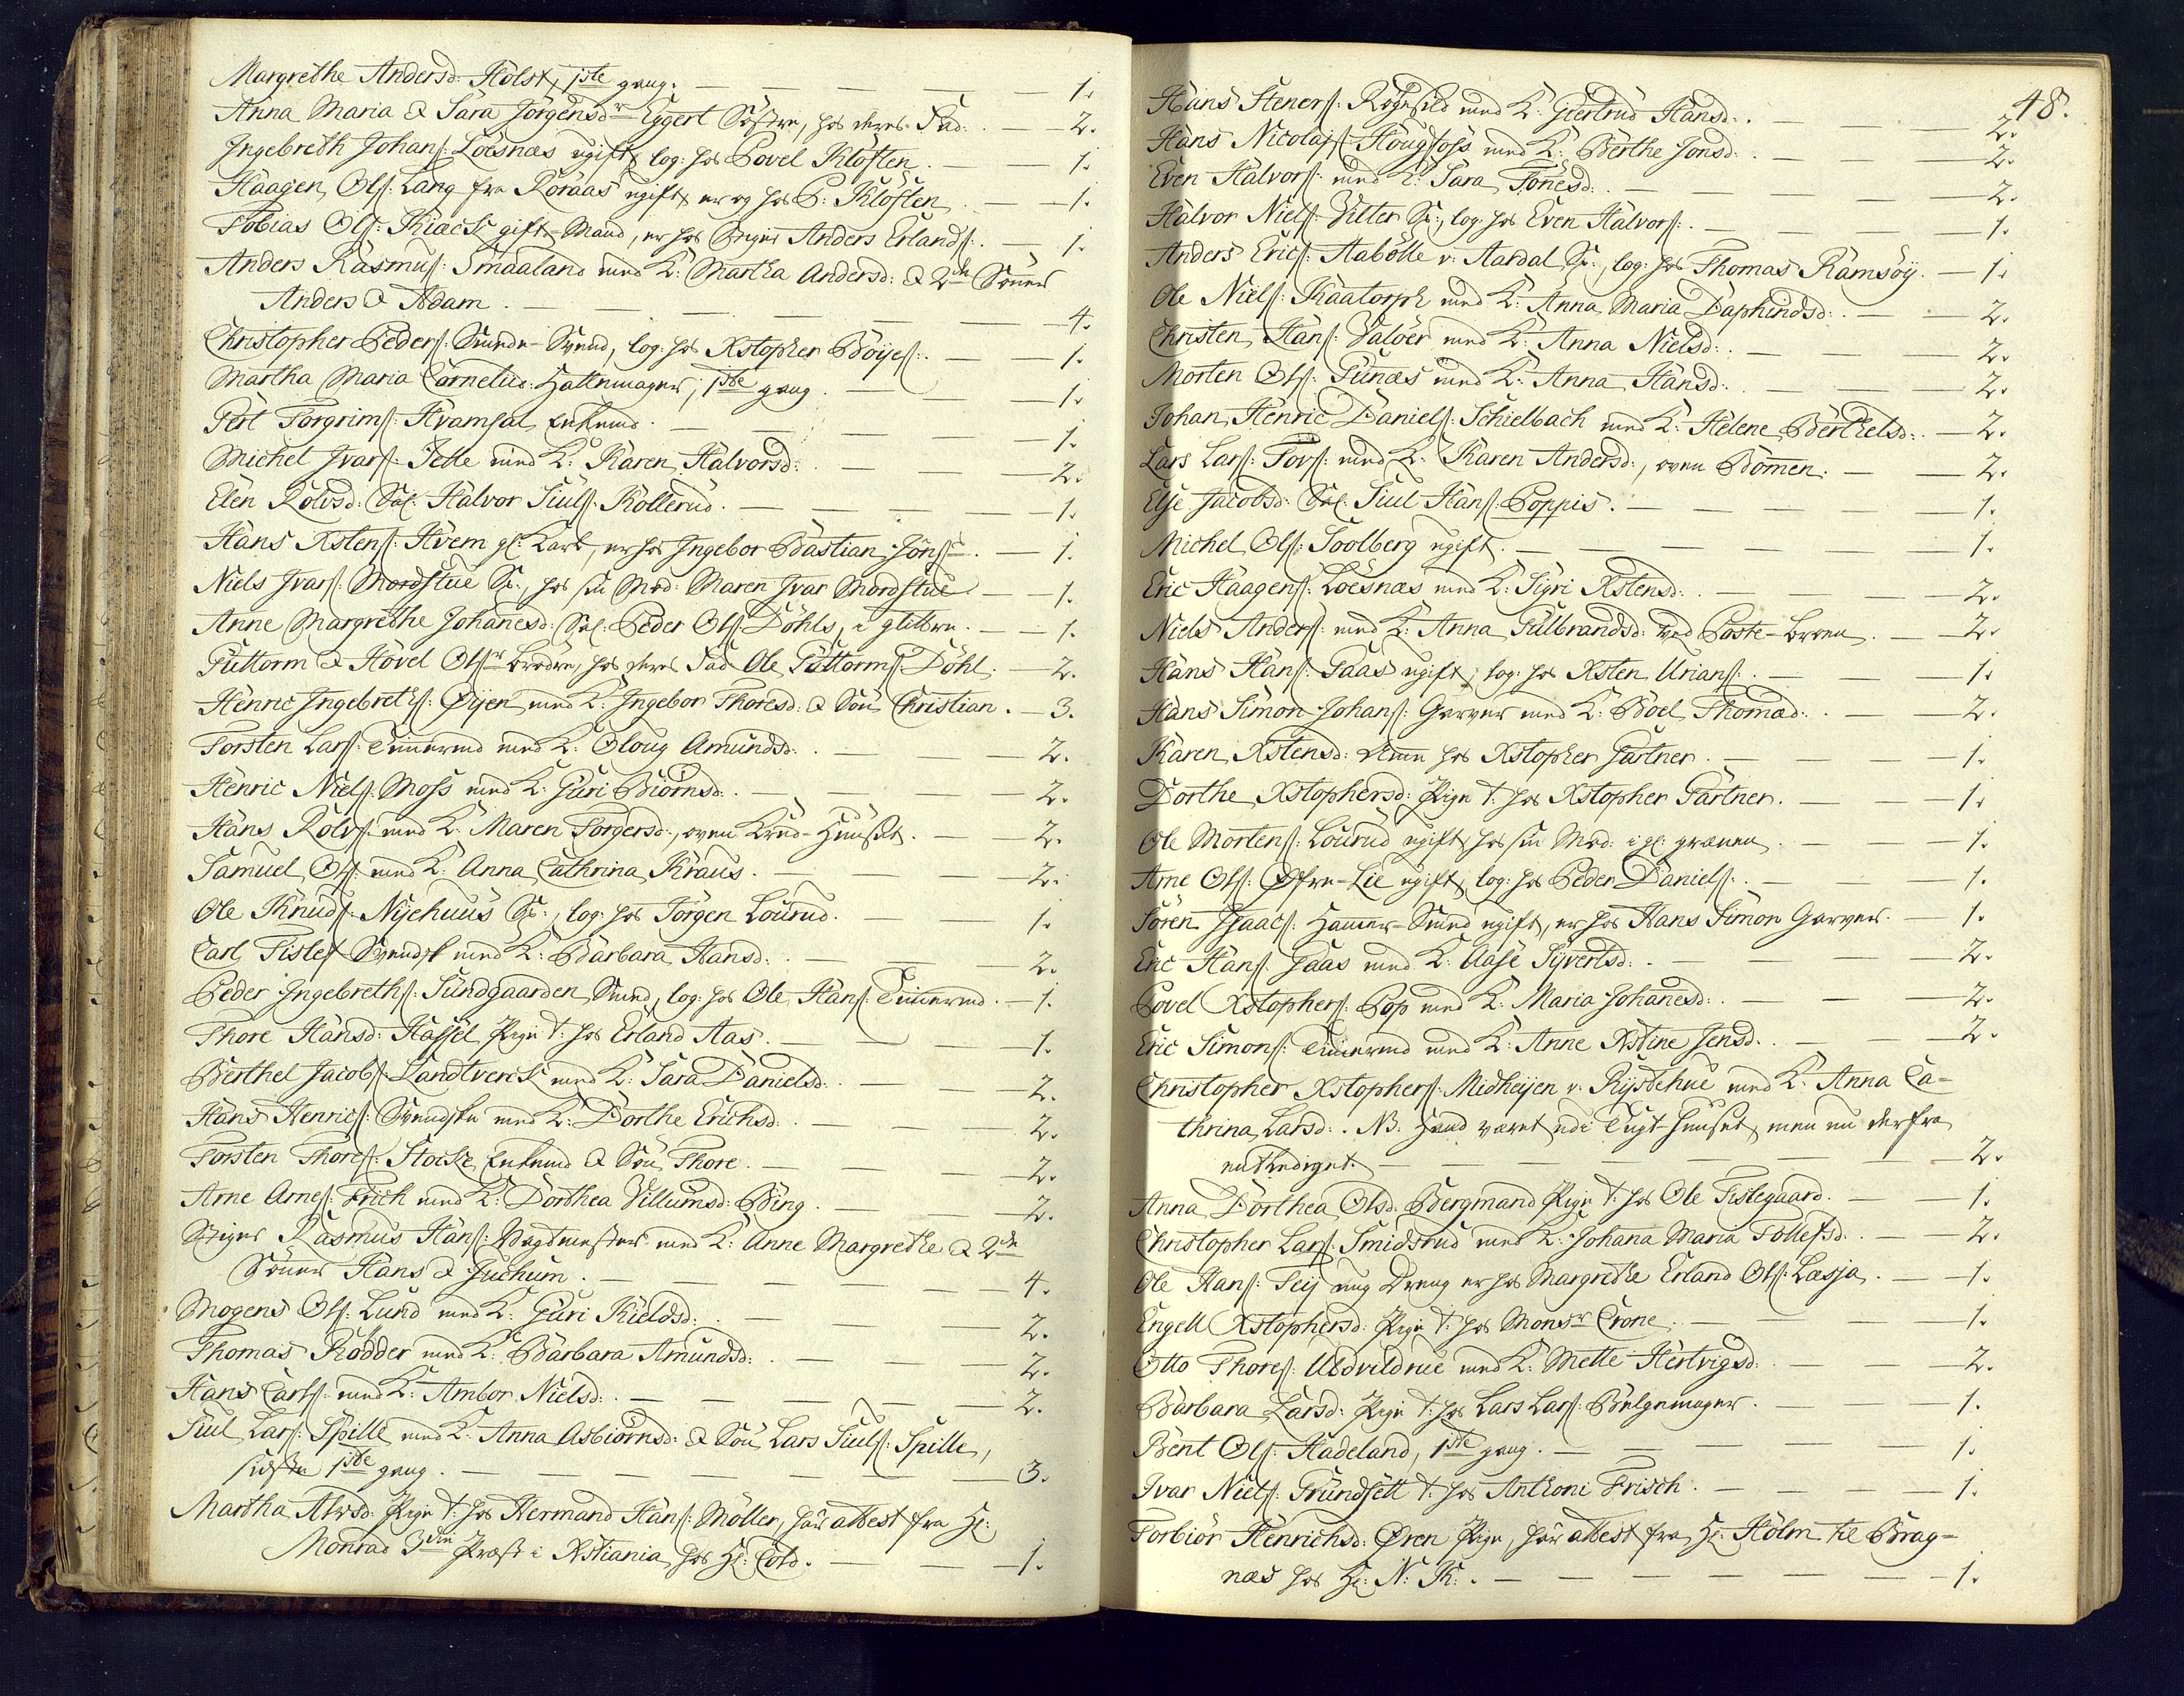 Margrethe Andersd: Holst, 1ste gang. — 1.
Anna Maria & Sara Jørgensdr Eggert Søstre, hos deres Fad: — 2.
Ingebreth Johans: Loesnæs ugift, log: hos Povel Kløften. — 1.
Haagen Ols: Lang fra Røraas ugift, er og hos P: Kløften. — 1.
Tobias Ols: Kiæck gift-Mand, er hos Stiger Anders Erlands: — 1.
Anders Rasmus: Smaaland med K: Martha Andersd: & 2de Sønner
Anders & Adam. — 4.
Christopher Peders: Smede-Svend, log: hos Xstopher Bøyes: — 1.
Martha Maria Cornelii: Hattemager, 1ste gang. — 1.
Pert Torgrims: Hvamsal Enkemd. — 1.
Michel Ivars: Jette med K: Karen Halvorsd: — 2.
Elen Rolvsd: Sal: Halvor Siuls: Kollerud. — 1.
Hans Xstens: Hvem gl: Karl, er hos Ingebor Bastian Jøns: — 1.
Niels Ivars: Mordstue S:, hos sin Mod: Maren Ivar Mordstue — 1.
Anne Margrethe Johanesd: Sal: Peder Ols: Døhls, i glittre. — 1.
Guttorm & Hovel Olsr Brødre, hos deres Fad: Ole Guttorms: Døhl. — 2.
Henric Ingebreths: Øijen med K: Ingebor Thoresd: & Søn Christian. — 3.
Torsten Lars: Timermd med K: Oloug Amundsd: — 2.
Henric Niels: Moss med K: Guri Biørnsd: — 2.
Hans Rolvs: med K: Maren Torgersd:, oven Krud-Huuset. — 2.
Samuel Ols: med K: Anna Cathrina Kraus. — 2.
Ole Knuds: Nyehuus S:, log: hos Jørgen Lourud. — 1.
Carl Fisles Svendsk med K: Barbara Hansd: — 2.
Peder Ingebreths: Sundgaarden Smed, log: hos Ole Hans: Timermd. — 1.
Thore Hansd: Hassel Pige t: hos Erland Aas. — 1.
Berthel Jacobs: Landtverck med K: Sara Danielsd: — 2.
Hans Henrics: Svendske med K: Dorthe Erichsd: — 2.
Torsten Thores: Stocke Enkemd & Søn Thore. — 2.
Arne Arnes: Frich med K: Dorthea Villumsd: Bing. — 2.
Stiger Rasmus Hans: Vagtmester med K: Anne Margrethe & 2de
Sønner Hans & Juchum. — 4.
Mogens Ols: Lund med K: Guri Kieldsd: — 2.
Thomas Rødder med K: Barbara Amundsd: — 2.
Hans Carls: med K: Ambor Nielsd: — 2.
Siul Lars: Spille med K: Anna Asbiørnsd: & Søn Lars Siuls: Spille,
sidste 1ste gang. — 3.
Martha Alvsd: Pige t: hos Hermand Hans: Møller, har attest fra Hr:
Monrad 3die Præst i Xstiania, hos Hr: Cold. — 1.
48.
Hans Steners: Rognsild med K: Giertrud Hansd: — 2.
Hans Nicolajs: Hougfoss med K: Berthe Jonsd: — 2.
Even Halvors: med K: Sara Tønesd: — 2.
Halvor Niels: Vitter S:, log: hos Even Halvors: — 1.
Anders Erics: Aabølle v: Aardal S:, log: hos Thomas Ramsøy. — 1.
Ole Niels: Kaatorph med K: Anna Maria Daphindsd: — 2.
Christen Hans: Valøer med K: Anna Nielsd: — 2.
Morten Ols: Funæs med K: Anna Hansd: — 2.
Johan Henric Daniels: Schielbach med K: Helene Berthelsd: — 2.
Lars Lars: Fors: med K: Karen Andersd:, oven Bommen. — 2.
Else Jacobsd: Sal: Siul Hans: Poppis. — 1.
Michel Ols: Soolberg ugift. — 1.
Eric Haagens: Loesnæs med K: Sigri Xstensd: — 2.
Niels Anders: med K: Anna Gulbrandsd: ved Poste-Broen. — 2.
Hans Hans: Gaas ugift, log: hos Xsten Urians: — 1.
Hans Simon Johans: Garver med K: Boel Thomad: — 2.
Karen Xstensd: Ame hos Xstopher Gartner. — 1.
Dorthe Xstophersd: Pige t: hos Xstopher Gartner. — 1.
Ole Mortens: Lourud ugift, hos sin Mod: i gl: grænen. — 1.
Arne Ols: Øfre-Lie ugift, log: hos Peder Daniels: — 1.
Søren Isaacs: Hammer-Smed ugift, er hos Hans Simon Garver. — 1.
Eric Hans: Gaas med K: Aase Syvertsd: — 2.
Povel Xstophers: Pop med K: Maria Johanesd: — 2.
Eric Simons: Timermd med K: Anne Xstine Jensd: — 2.
Christopher Xstophers: Midheyen v: Rystehue med K: Anna Ca-
thrina Larsd: NB: Hand været udi Tugt-Huuset, men nu derfra
entlediget. — 2.
Anna Dorthea Olsd: Bergmand Pige t: hos Ole Tislegaard. — 1.
Christopher Lars: Smidsrud med K: Johana Maria Tollefsd: — 2.
Ole Hans: Teij ung Dreng er hos Margrethe Erland Ols: Læsja. — 1.
Engell Xstophersd: Pige t: hos Monsr Crone. — 1.
Otto Thores: Uldvildrue med K: Mette Hertvigsd: — 2.
Barbara Larsd: Pige t: hos Lars Lars: Belgemager. — 1.
Bent Ols: Hadeland, 1ste gang. — 1.
Ivar Niels: Grundsett t: hos Anthoni Frisch. — 1.
Torbiør Henrichsd: Øren Pige, har attest fra Hr: Holm til Brag-
næs hos Hr: N: K: — 1.